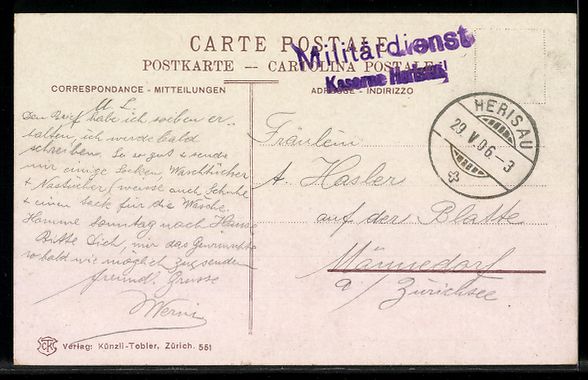 CARTE POSTALE
Militärdienst
POSTKARTE -- CARTOLINA POSTALE
Kaserne Herisau
CORRESPONDANCE - MITTEILUNGEN
ADRESSE - INDIRIZZO
HERISAU
29.V.06.-3
M. L.
Den Brief habe ich soeben er-
halten, ich werde bald
schreiben. So es gut sende
mir einige Socken, Waschtücher
+ Nastücher weisse auch Schuhe
+ einen Sack für die Wäsche.
Komme Sonntag nach Hause
Bitte Dich, mir das Gewünschte
so bald wie möglich zuzusenden
freundl. Grüsse
Werni
Fräulein
A. Hasler
auf der Blatte
Männedorf
a/ Zürichsee
Verlag: Künzli-Tobler, Zürich. 551